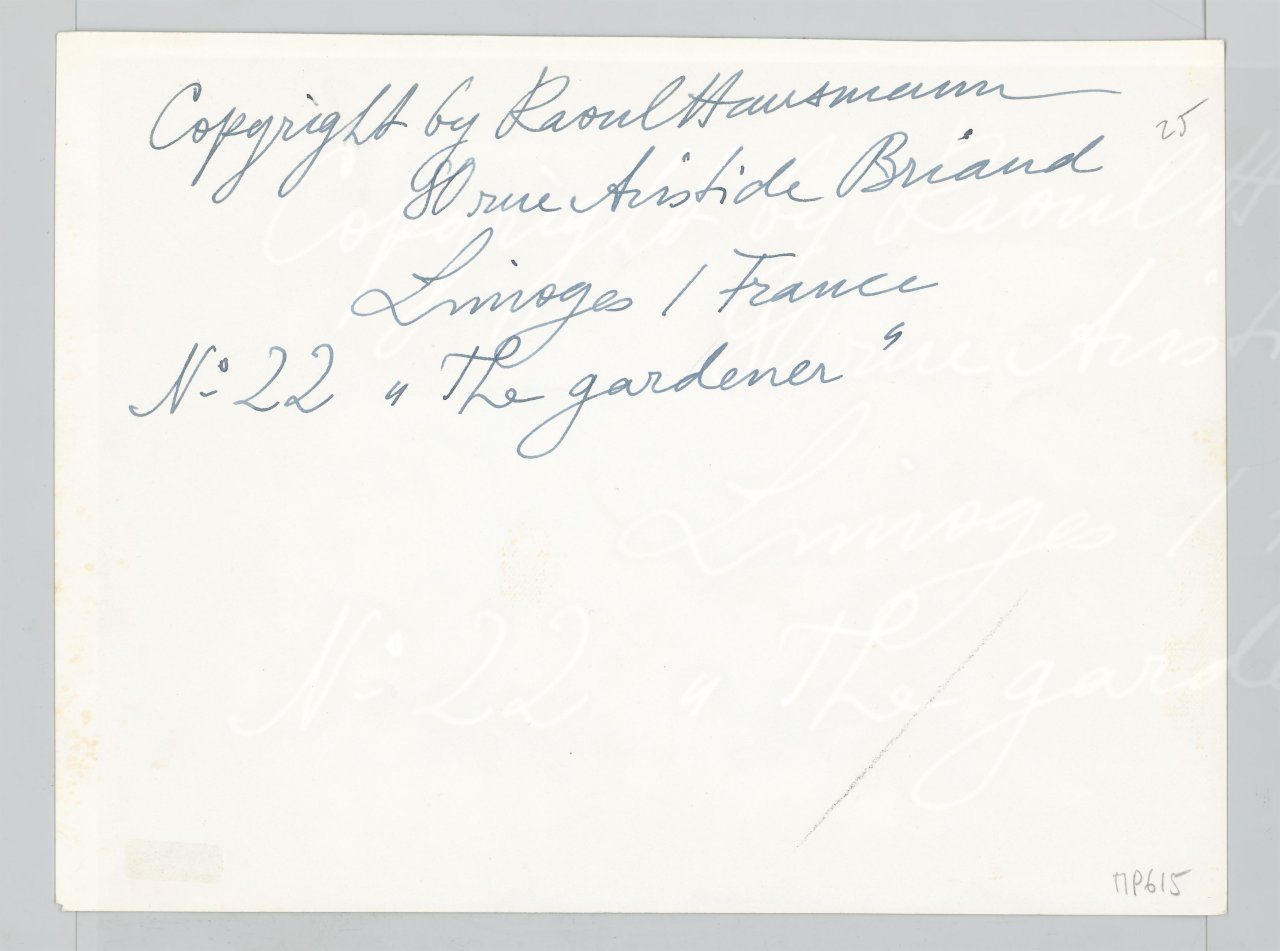 Copyright by Raoul Hausmann
25
80 rue Aristide Briand
Limoges / France
No 22 „The gardener“
MP615